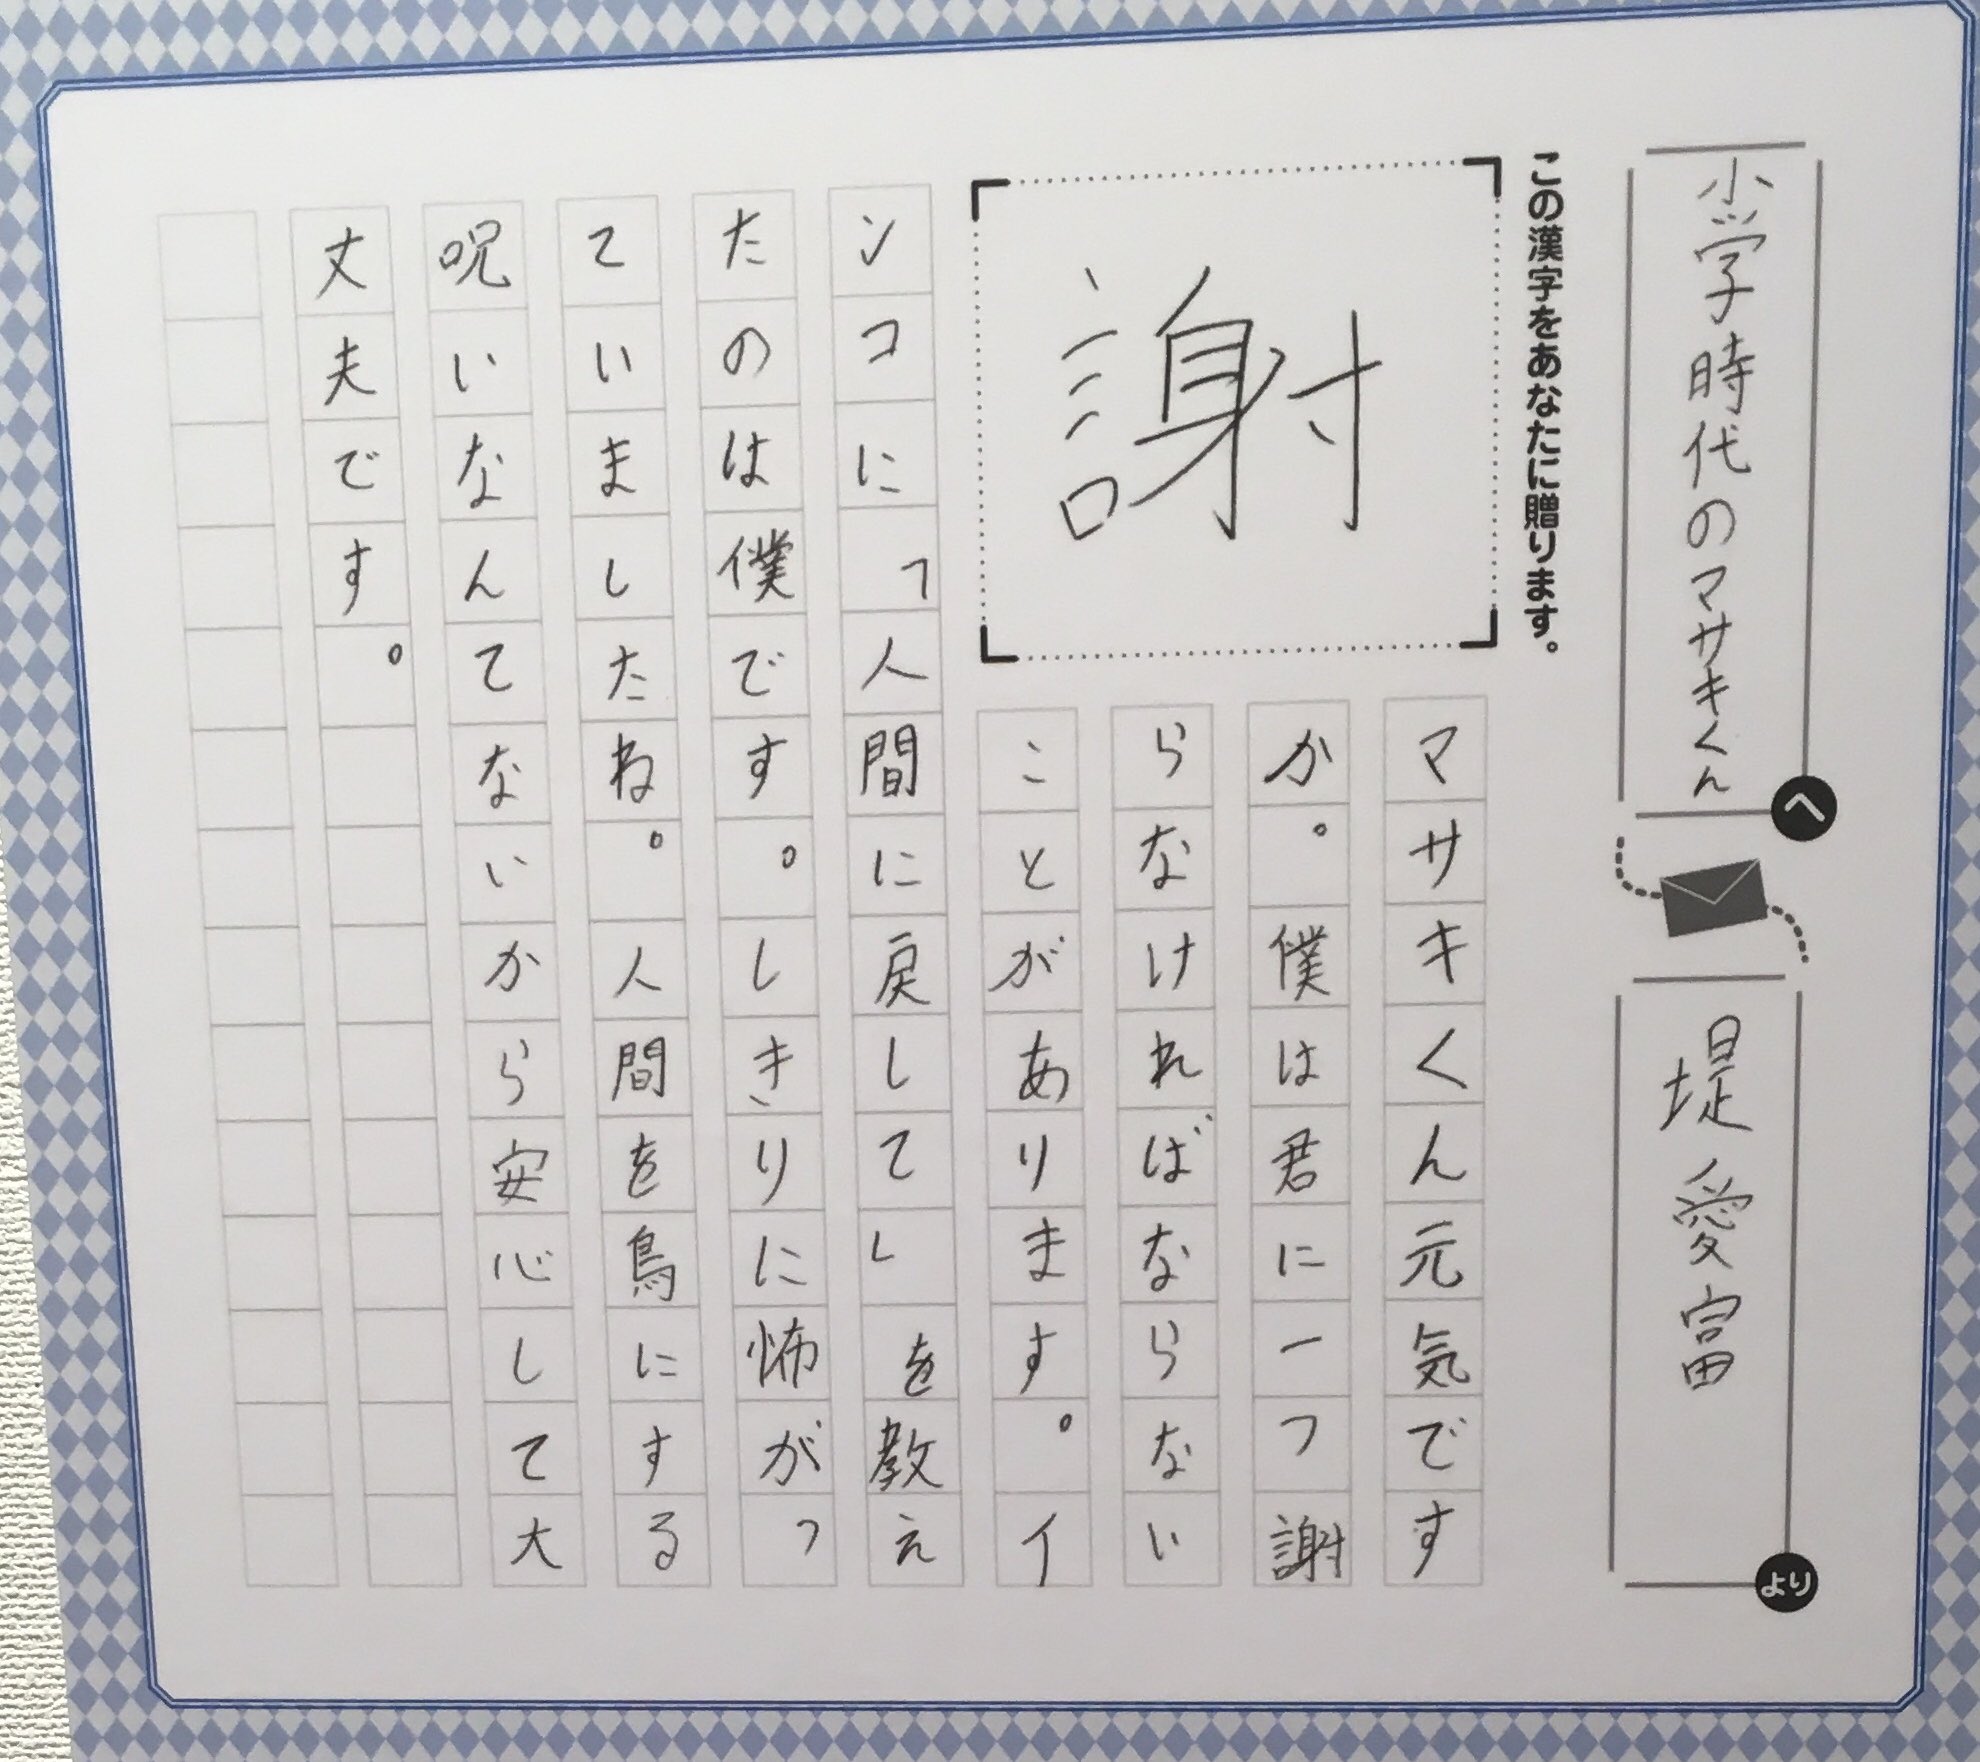 小学時代のマサキくん
へ
堤愛富
より
この漢字をあなたに贈ります。
謝
マサキくん元気です
か。僕は君に一つ謝
らなければならない
ことがあります。イ
ンコに「人間に戻して」を教え
たのは僕です。しきりに怖がっ
ていましたね。人間を鳥にする
呪いなんてないから安心して大
丈夫です。